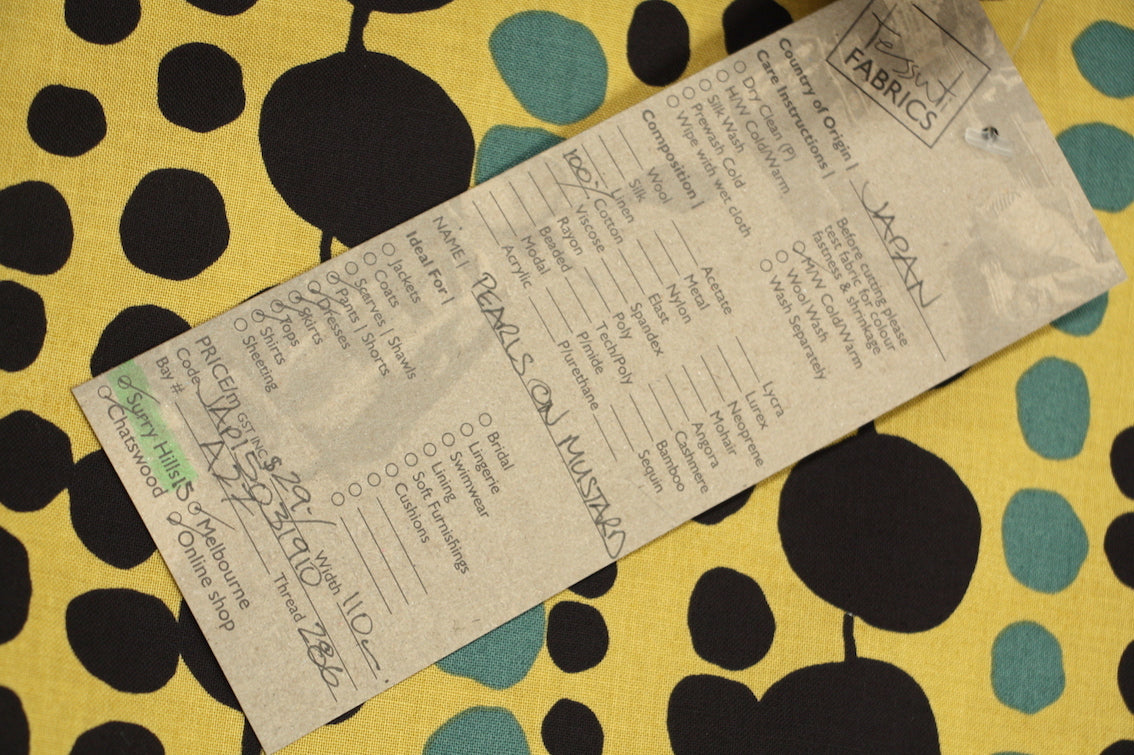 Tessuti
FABRICS
Country of Origin | JAPAN
Care Instructions |
Dry Clean (P)
H/W Cold/Warm
Silk Wash
Prewash Cold
Wipe with wet cloth
Before cutting please
test fabric for colour
fastness & shrinkage
M/W Cold/Warm
Wool Wash
Wash Separately
Composition |
Wool
Silk
Linen
100% Cotton
Viscose
Rayon
Beaded
Modal
Acrylic
Acetate
Metal
Nylon
Elast
Spandex
Poly
Tech/Poly
P/mide
P/urethane
Lycra
Lurex
Neoprene
Mohair
Angora
Cashmere
Bamboo
Sequin
NAME | PEARLS ON MUSTARD
Ideal For |
Jackets
Coats
Scarves | Shawls
Pants | Shorts
Dresses
Skirts
Tops
Shirts
Sheeting
Bridal
Lingerie
Swimwear
Lining
Soft Furnishings
Cushions
PRICE/m GST INC $29- Width 110c
Code JAPL503/910 Thread 286
Bay # A27
Surry Hills 15 Melbourne
Chatswood Online shop